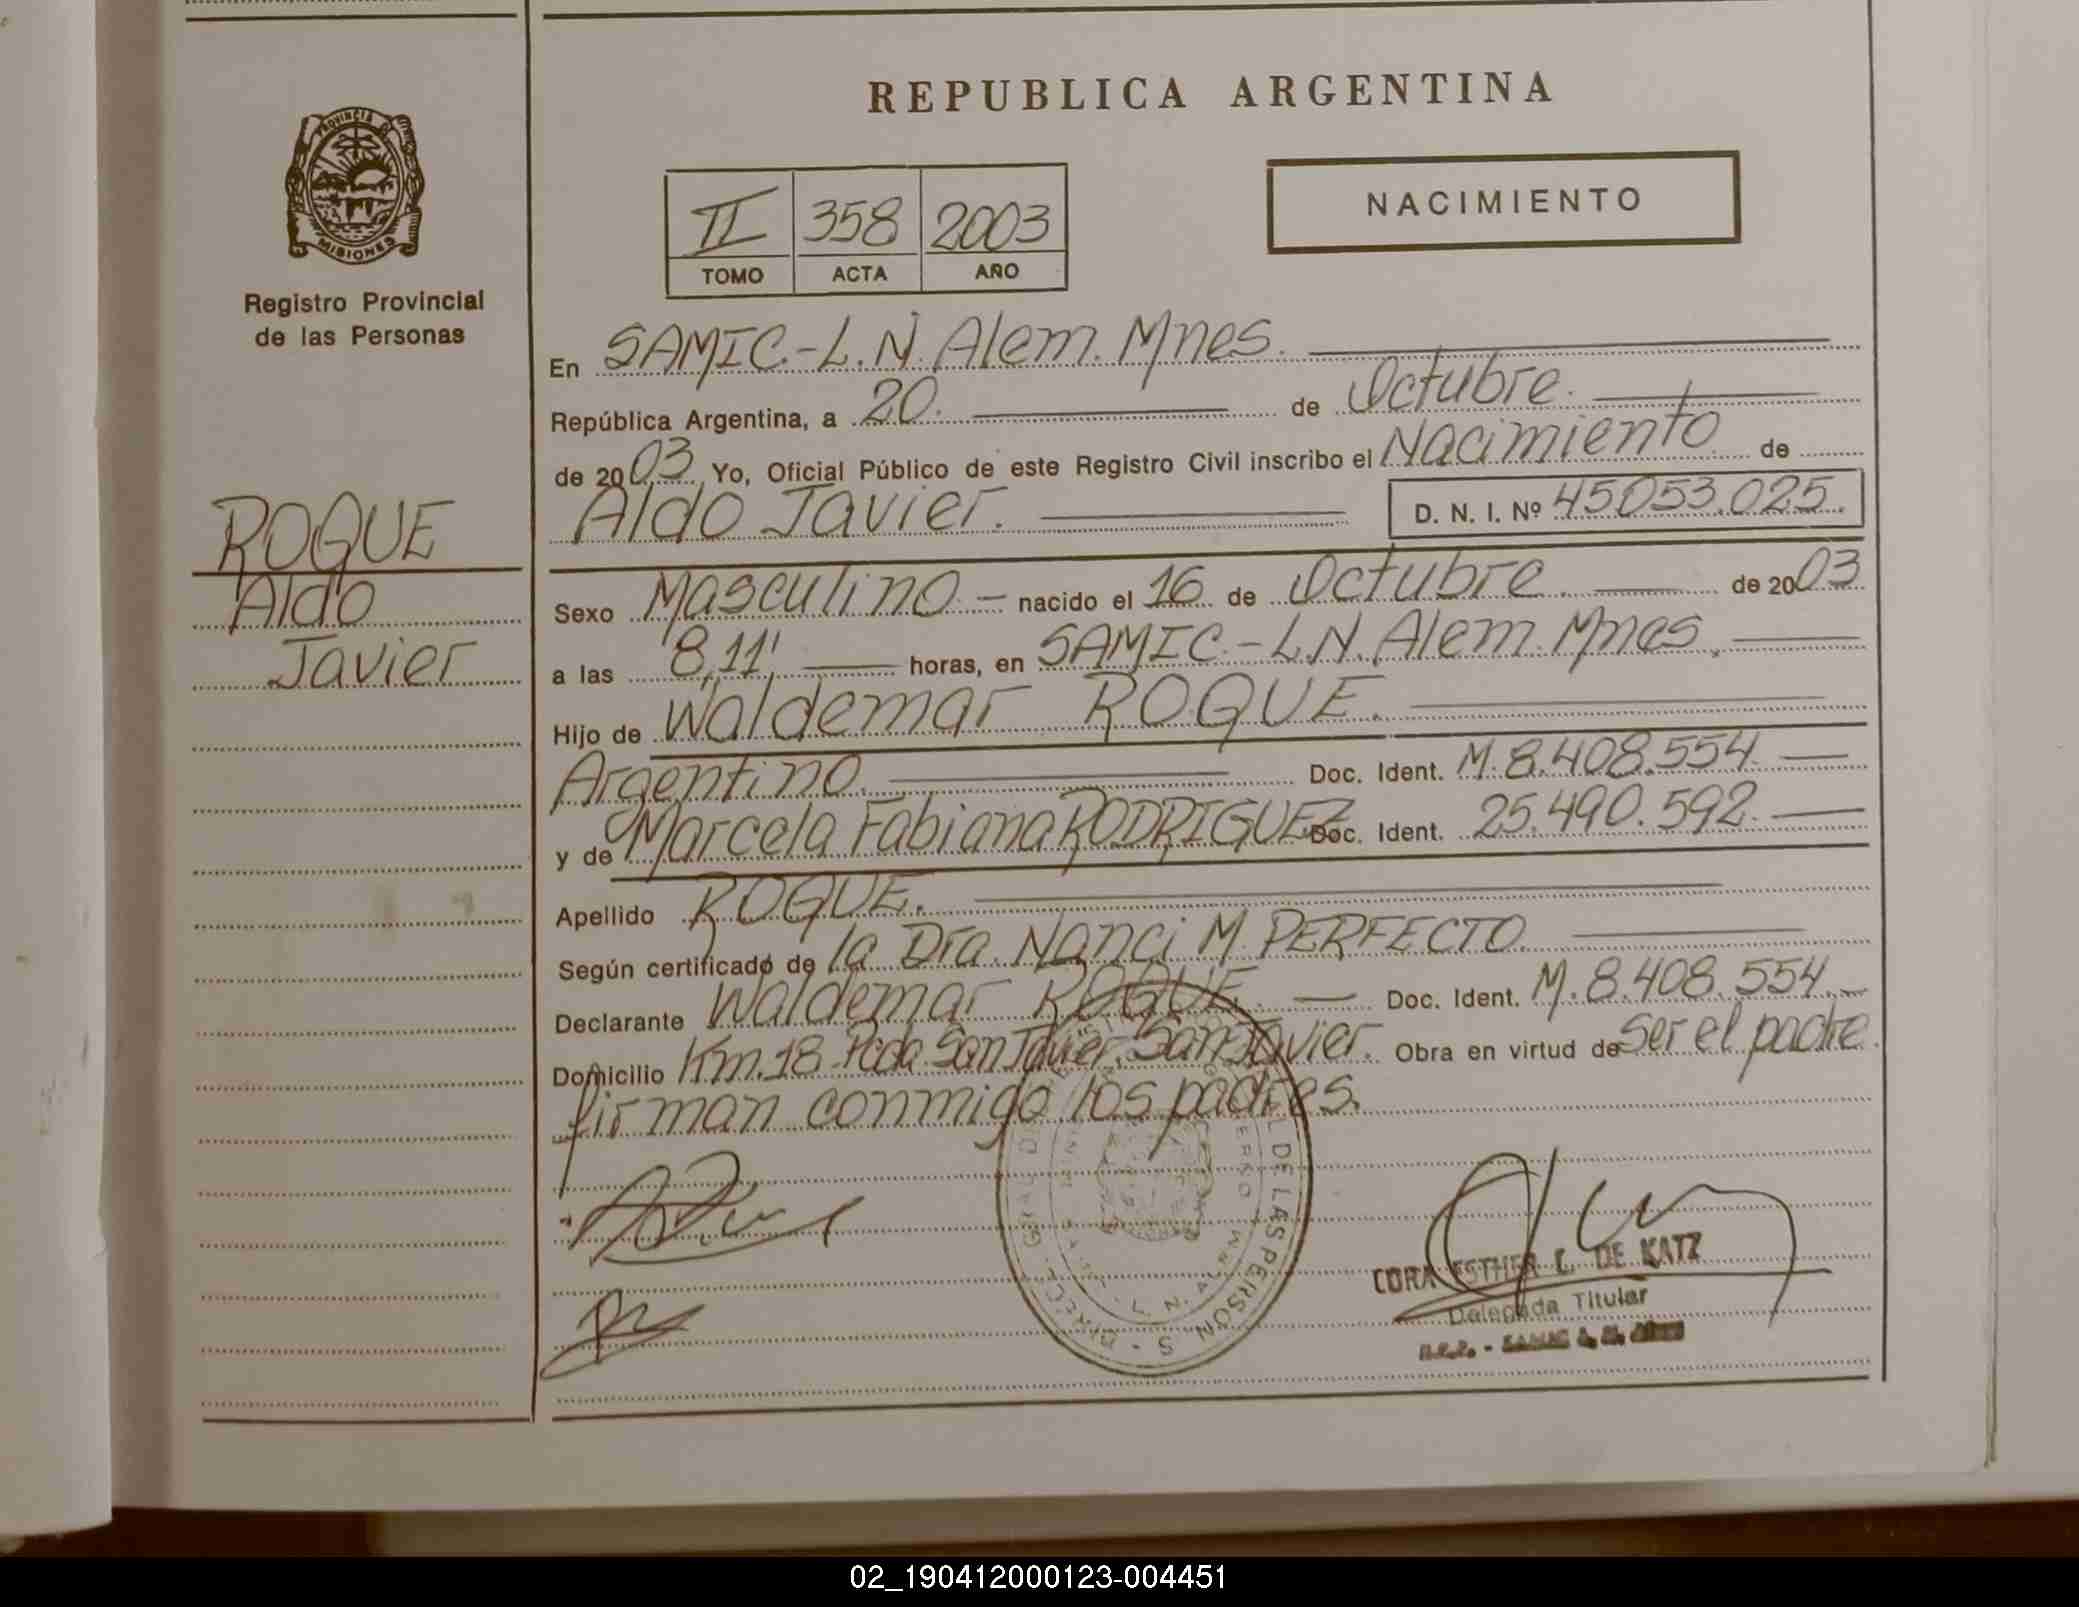 REPUBLICA ARGENTINA
PROVINCIA DE
MISIONES
Registro Provincial
de las Personas
II 358 2003
TOMO ACTA AÑO
NACIMIENTO
En SAMIC.-L.N. Alem. Mnes.
República Argentina, a 20. de Octubre.
de 2003 Yo, Oficial Público de este Registro Civil inscribo el Nacimiento de
Aldo Javier. D. N. I. Nº 45053.025.
ROQUE
Aldo
Javier
Sexo Masculino - nacido el 16 de Octubre. de 2003
a las 8,11' horas, en SAMIC.-L.N. Alem. Mnes.
Hijo de Waldemar ROQUE.
Argentino. Doc. Ident. M. 8.408.554.
y de Marcela Fabiana RODRIGUEZ Doc. Ident. 25.490.592.
Apellido ROQUE.
Según certificado de la Dra. Nanci M. PERFECTO.
Declarante Waldemar ROQUE. Doc. Ident. M. 8.408.554.
Domicilio Km. 18 Pcda San Javier, San Javier. Obra en virtud de ser el padre.
firman conmigo los padres.
CORA ESTHER C. DE KATZ
Delegada Titular
02_190412000123-004451